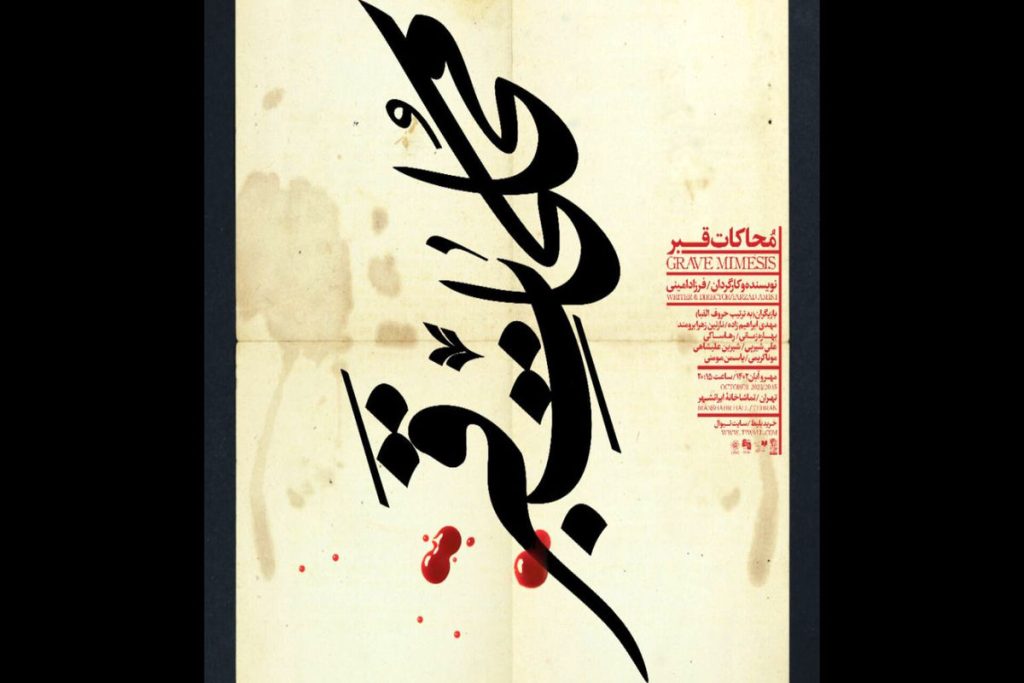 مُحاکات قبر
مُحاکات قبر
GRAVE MIMESIS
نویسنده و کارگردان / فرزاد امینی
WRITER & DIRECTOR/FARZAD AMINI
بازیگران (به ترتیب حروف الفبا)
مهدی ابراهیم زاده / نازنین زهرا برومند
بهاره زمانی / رها ساکی
علی شُربی / شیرین علیشاهی
مونا کریمی / یاسمن مومنی
مهر و آبان ۱۴۰۲ / ساعت ۲۰:۱۵
OCTOBER 2023/20:15
تهران / تماشاخانهٔ ایرانشهر
IRANSHAHR HALL / TEHRAN
خرید بلیط / سایت تیوال
WWW.TIWALL.COM